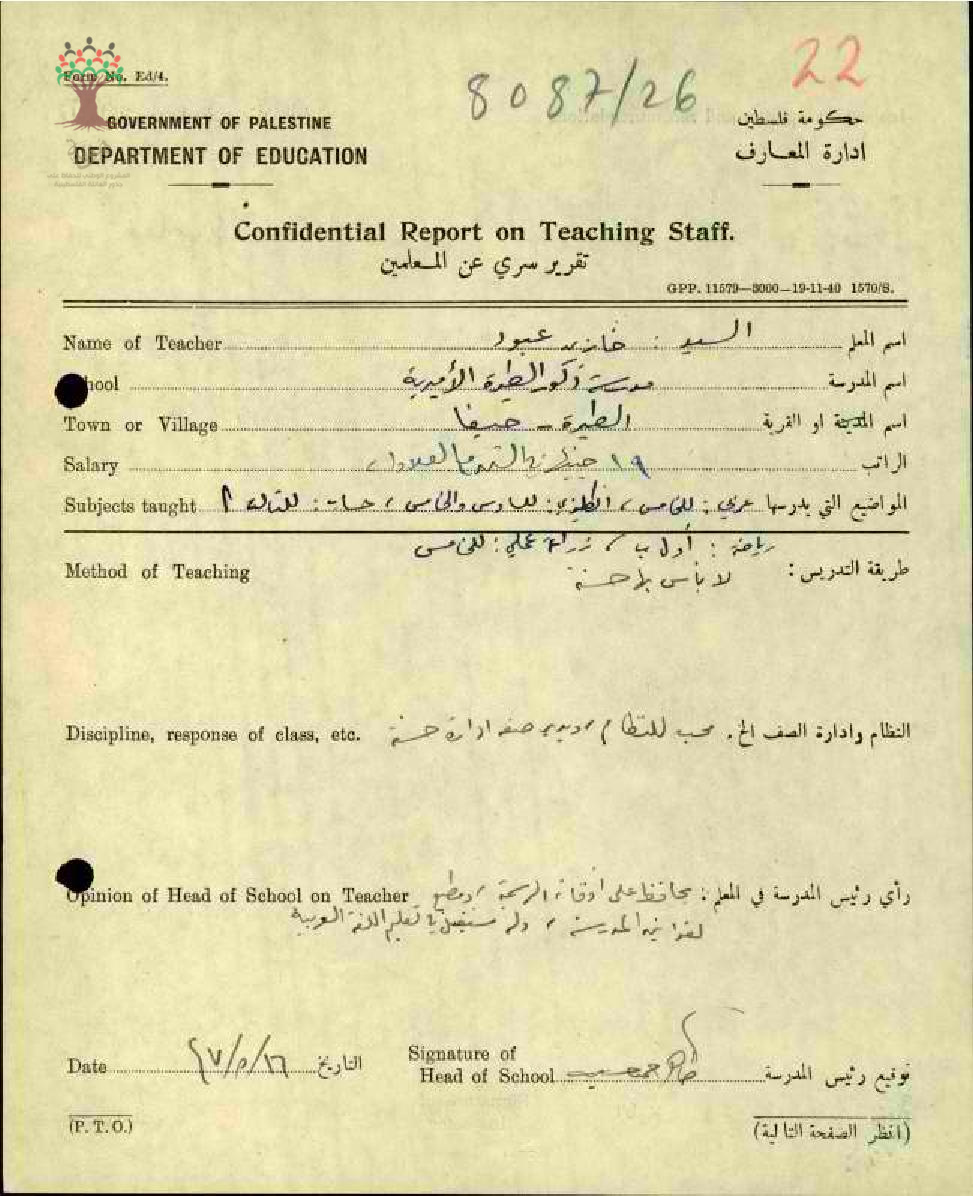 Form No. Ed/4.
8087/26
22
GOVERNMENT OF PALESTINE
DEPARTMENT OF EDUCATION
حكومة فلسطين
ادارة المعارف
Confidential Report on Teaching Staff.
تقرير سري عن المعلمين
GPP. 11579—3000—19-11-40 1570/S.
Name of Teacher السيد : عبود اسم المعلم
School مدرسة ذكور الطيرة الأميرية اسم المدرسة
Town or Village الطيرة - حيفا اسم المدينة او القرية
Salary ١٩ الراتب
Subjects taught المواضيع التي يدرسها عربي : للخامس ، انكليزي : للسادس والخامس ، حساب : للثالث أ
رياضة : أول ب ، زراعة عملي : للخامس
Method of Teaching طريقة التدريس : لا بأس بها حسنة
Discipline, response of class, etc. النظام وادارة الصف الخ. محب للنظام ، ويدير صفه ادارة حسنة
Opinion of Head of School on Teacher رأي رئيس المدرسة في المعلم : محافظ على اوقات الرسمية ، ومطيع
لقوانين المدرسة ، وله مستقبل تعليم اللغة العربية
Date التاريخ
Signature of
Head of School توقيع رئيس المدرسة
(P. T. O.)
(انظر الصفحة التالية)